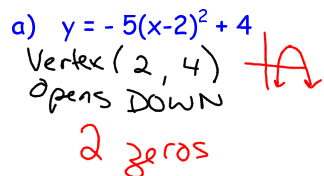 a) y = - 5(x-2)² + 4
Vertex (2, 4)
Opens DOWN
2 zeros